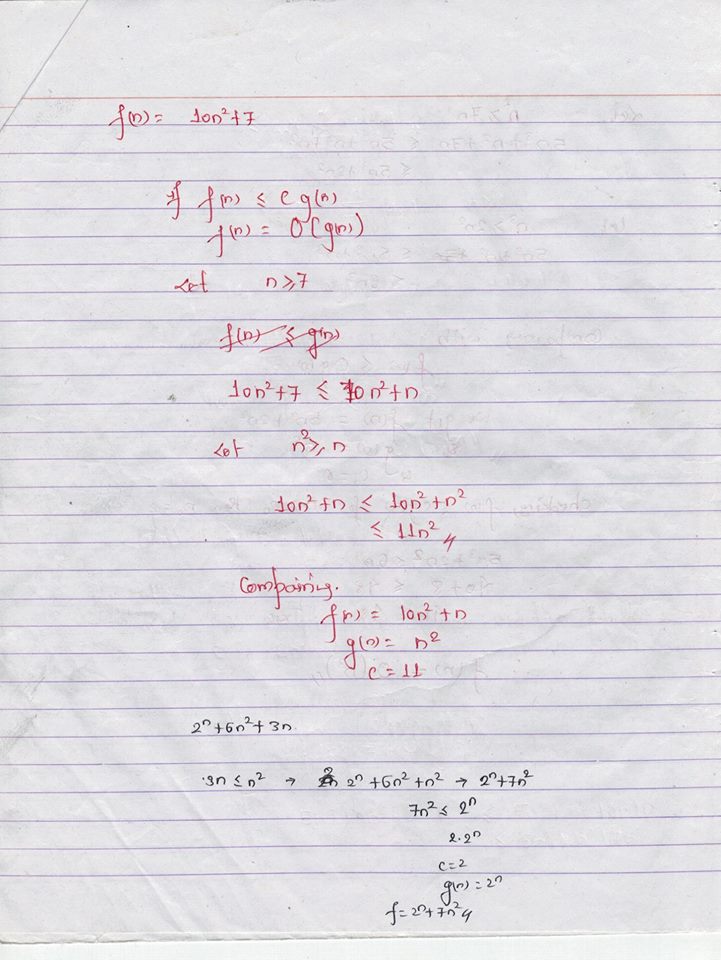 f(n) = 10n²+7
If f(n) ≤ c g(n)
f(n) = O(g(n))
Let n ≥ 7
f(n) ≤ g(n)
10n²+7 ≤ 10n²+n
Let n² ≥ n
10n²+n ≤ 10n²+n²
≤ 11n²
Compairing.
f(n) = 10n²+n
g(n) = n²
c = 11
2ⁿ+6n²+3n
3n ≤ n² → 2ⁿ+6n²+n² → 2ⁿ+7n²
7n² ≤ 2ⁿ
2·2ⁿ
c=2
g(n) = 2ⁿ
f = 2ⁿ+7n²